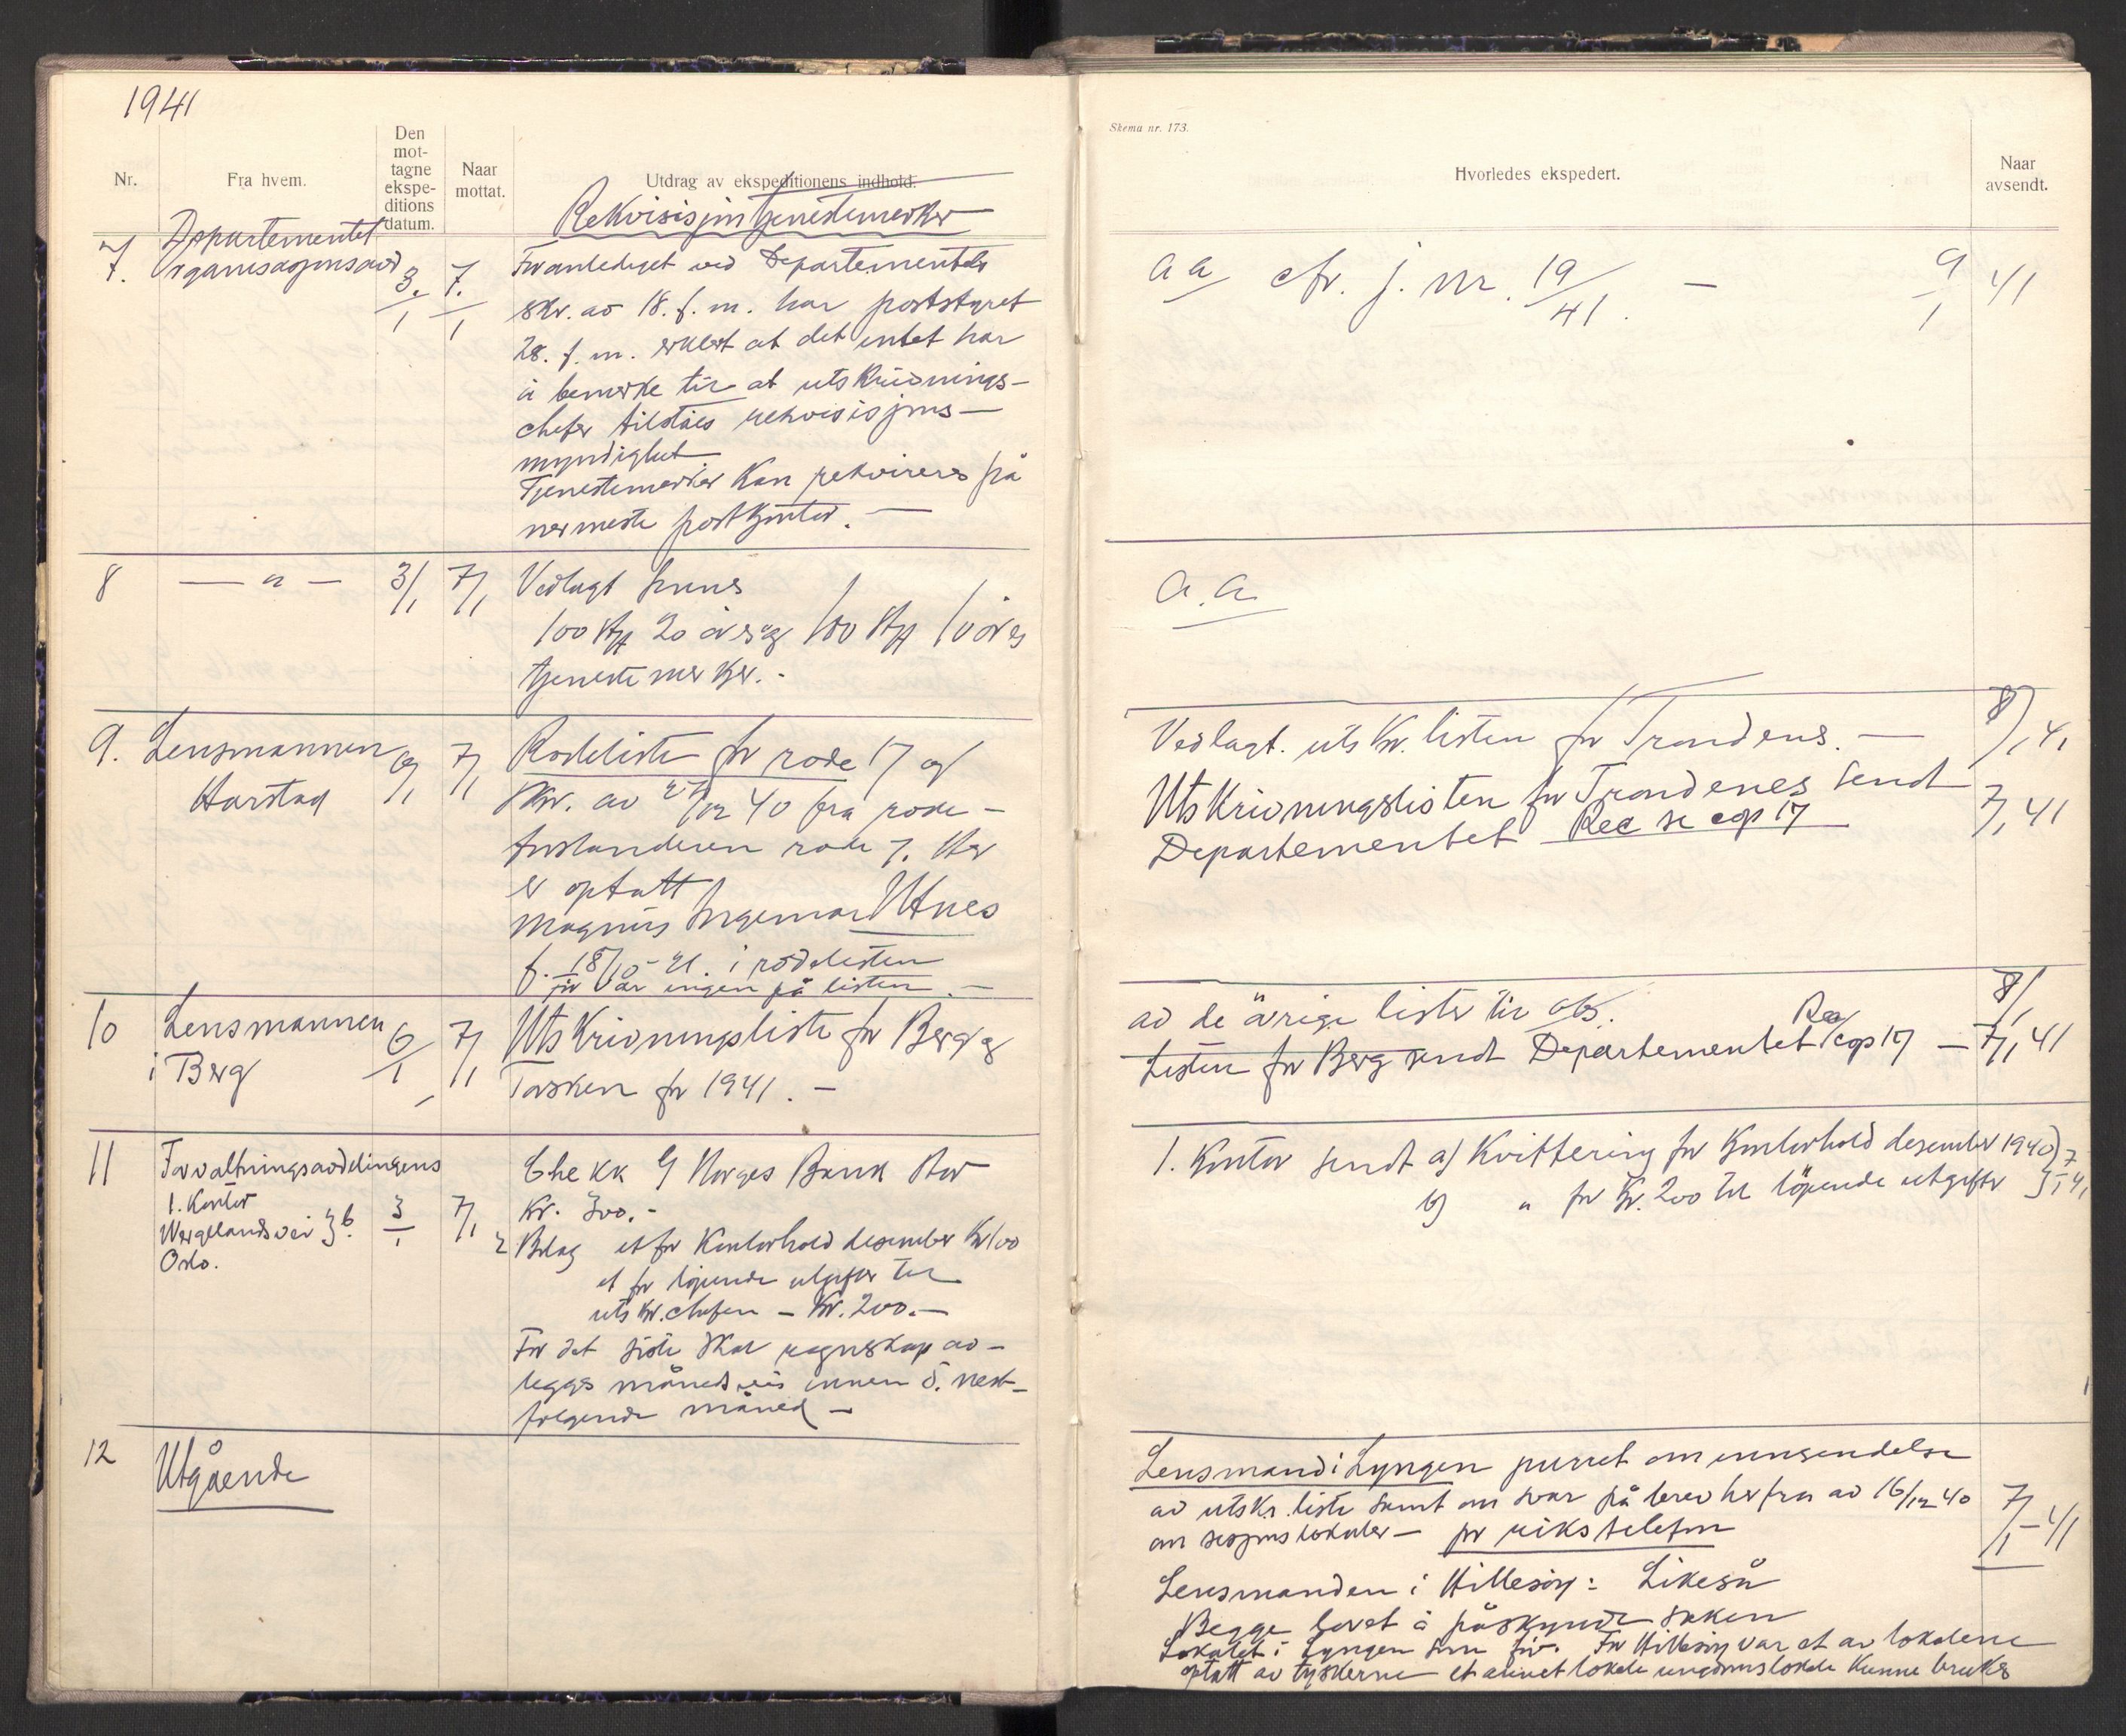 1941
Nr.
Fra hvem.
Den
mot-
tagne
ekspe-
ditions
datum.
Naar
mottat.
Utdrag av ekspeditionens indhold.
Rekvisisjon tjenestemerker
7. Departementet
Organisasjonsavd 3./1 7./1
Foranlediget ved Departementets
skr. av 18. f. m. har poststyret
28. f. m. erklert at det intet har
å bemerke til at utskrivnings-
chefer tilståes rekvisisjons-
myndighet.
Tjenestemerker kan rekvireres på
nermeste postkontor. —
8 — " — 3/1 7/1 Vedlagt finnes
100 stk 20 øres og 100 stk 10 øres
tjenestemerker. -
9. Lensmannen
Harstad 6/1 7/1 Rodeliste for rode 17 og
skr. av 27/12 40 fra rode-
forstanderen rode 7. Her
er optatt
Magnus Ingemar Utnes
f. 18/10 - 21. i rodelisten
før var ingen på listen. —
10 Lensmannen
i Berg 6/1 7/1 Utskrivningsliste for Berg og
Torsken for 1941. —
11 Forvaltningsavdelingens
1. Kontor
Wergelandsvei 3b.
Oslo. 3/1 7/1
Chekk på Norges Bank stor
Kr. 300. -
2 Bilag et for Kontorhold desember Kr 100
et for løpende utgifter til
utskr.chefen — Kr. 200. —
For det siste skal regnskap av-
legges månedsvis innen 5. nest-
følgende måned —
12 Utgående
Skema nr. 173.
Hvorledes ekspedert.
Naar
avsendt.
a a cfr. j. nr. 19/41. — 9/1 41
a. a.
Vedlagt. utskr. listen for Trondenes. — 8/1 41
Utskrivningslisten for Trondenes sendt
Departementet Rec se cop 17 7/1 41
av de øvrige lister til obs. 8/1
Listen for Berg sendt Departementet Rec/cop 17 — 7/1 41
1. Kontor sendt a) Kvittering for Kontorhold desember 1940
b) " for Kr. 200 til løpende utgifter } 7/1 41
Lensmand i Lyngen purret om innsendelse
av utskr. liste samt om svar på brev herfra av 16/12 40
om sesjonslokaler — pr rikstelefon 7/1 - 41
Lensmanden i Hillesøy: Likeså
Begge lovet å påskynde saken
Lokalet i Lyngen som før. For Hillesøy var et av lokalene
optatt av tyskerne — et annet lokale ungdomslokale kunne brukes